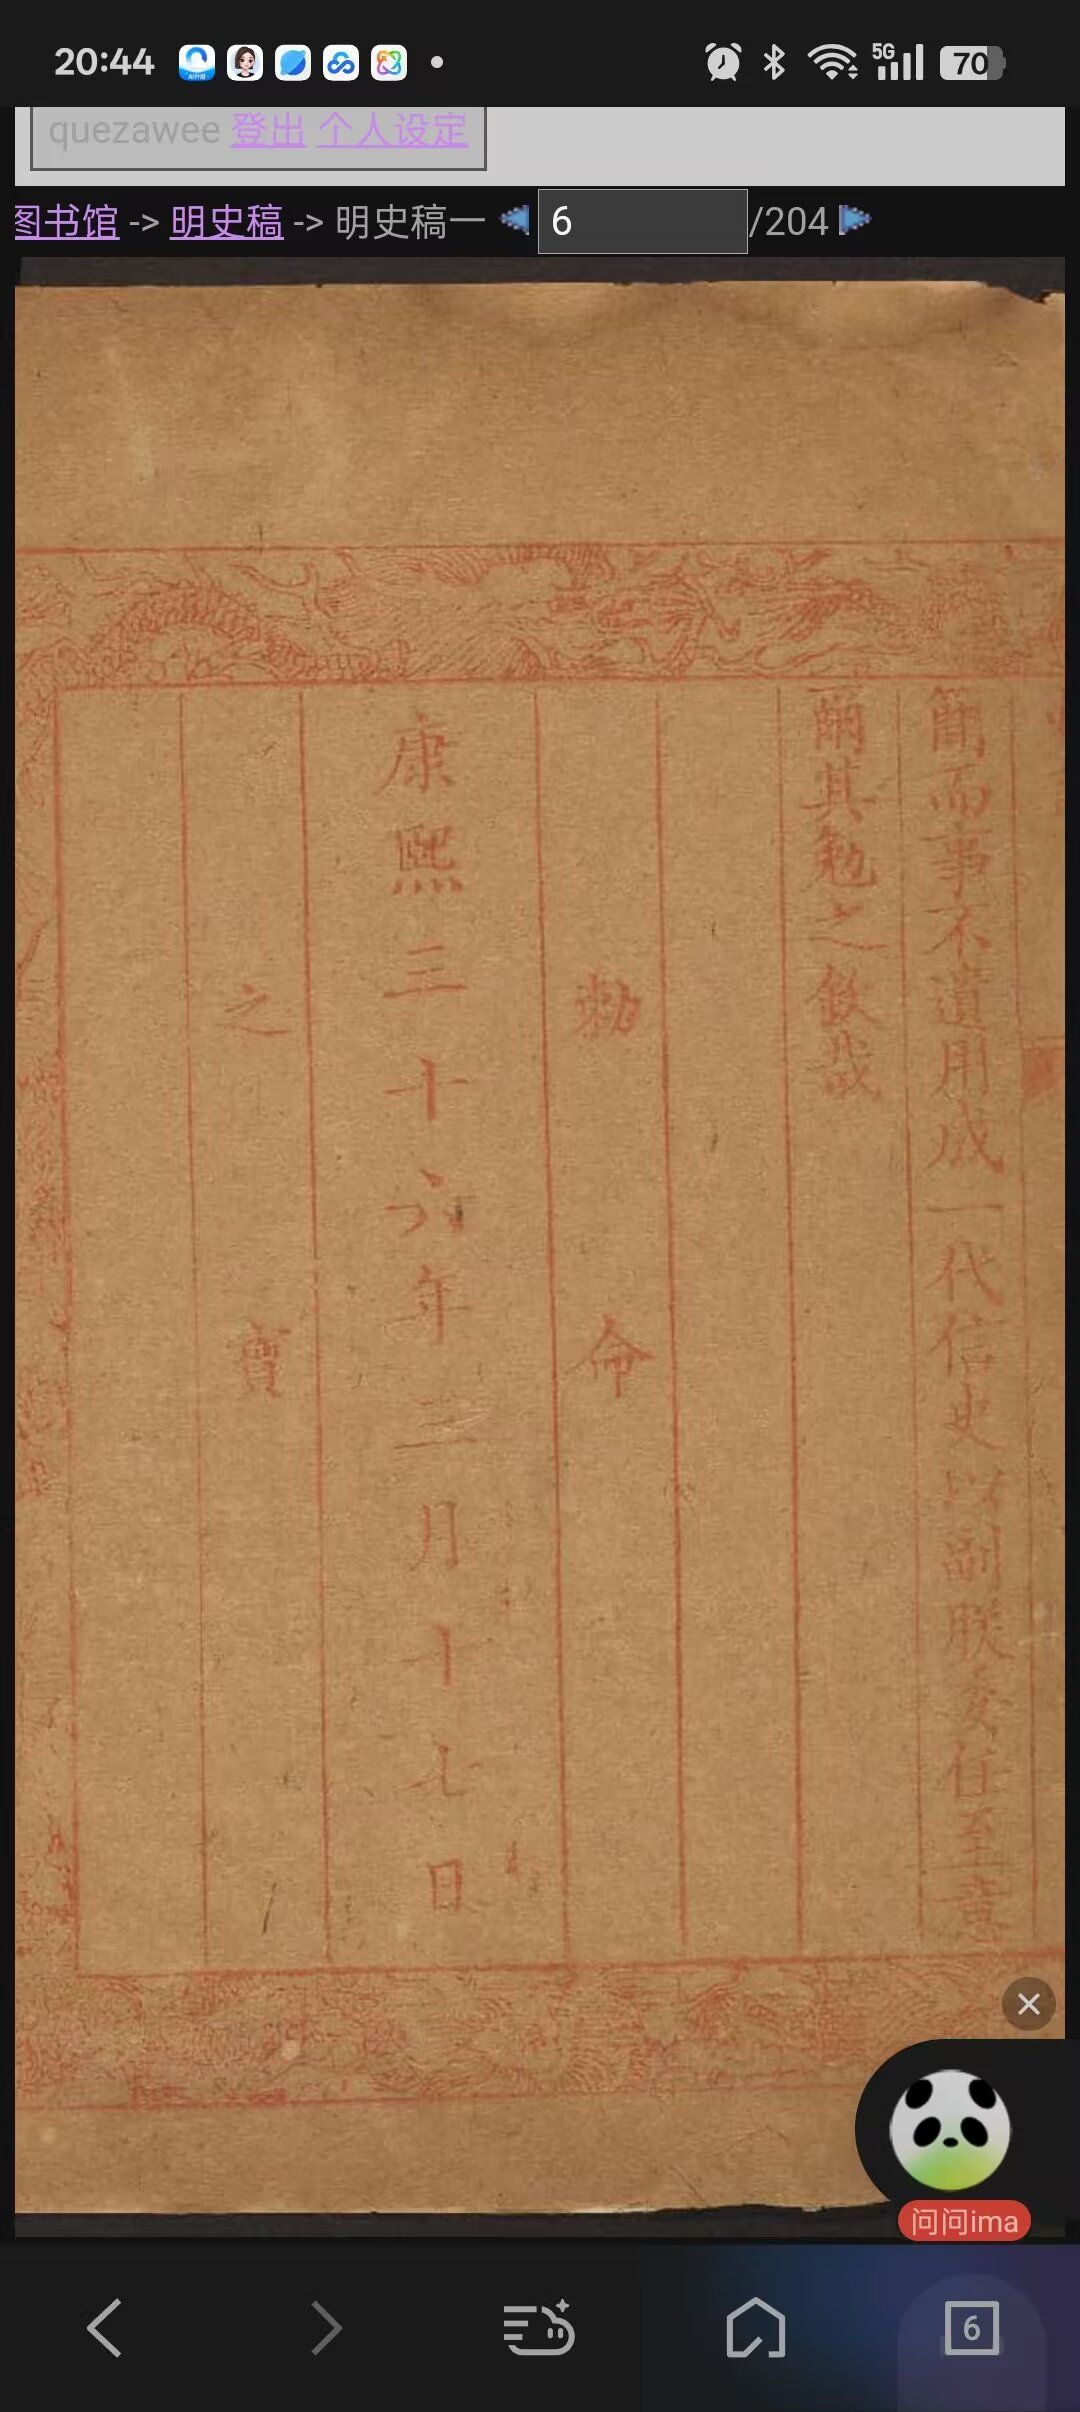 20:44
5G
70
quezawee 登出 个人设定
图书馆 -> 明史稿 -> 明史稿一 6 /204
簡而事不遺用成一代信史以副朕委任至意
爾其勉之欽哉
勅命
康熙三十六年三月十七日
之寶
问问ima
6